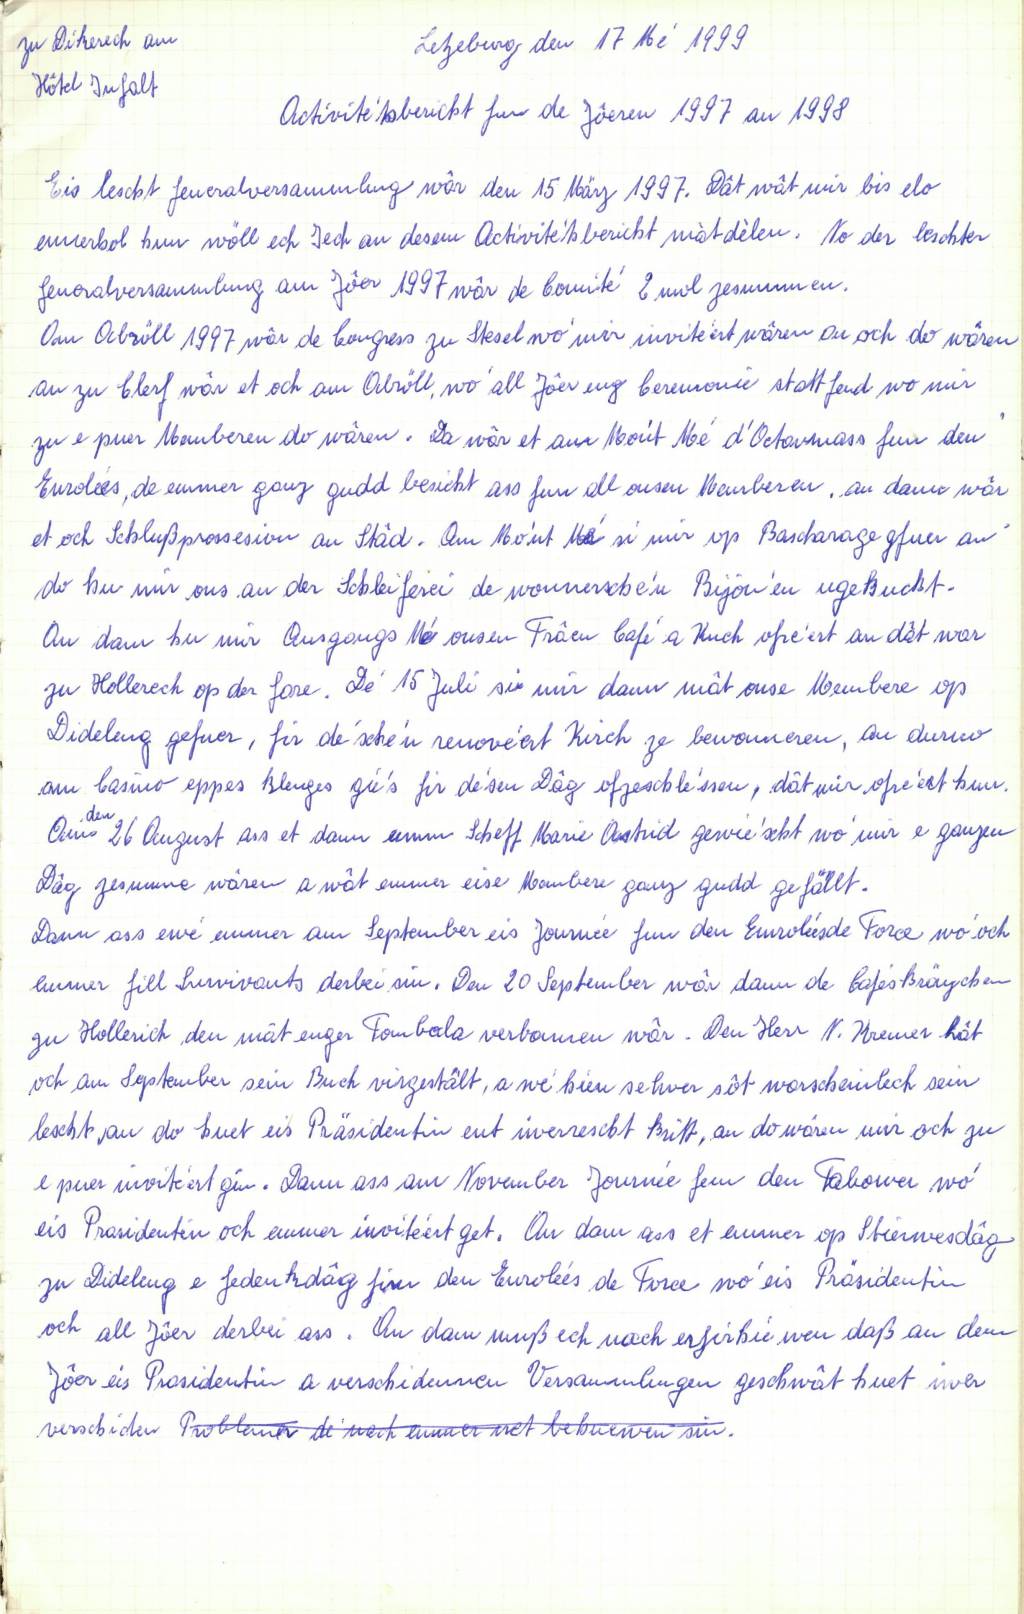 zu Dikerech am
Hôtel Inhalt
Letzeburg den 17 Mé 1999
Activitétsbericht fun de Jôeren 1997 an 1998
Eis lescht Generalversammlung wôr den 15 März 1997. Dât wât mir bis elo
emmerbol hun wöll ech Iech an desem Activitétsbericht màtdèlen. No der leschter
Generalversammlung am Jôer 1997 wôr de Comité 2 mol zesummen.
Am Abröll 1997 wôr de Congress zu Stesel wo' mir invitéert wôren an och do wôren
an zu Clerf wôr et och am Abröll, wo' all Jôer eng Ceremonie statt fend wo mir
zu e puer Memberen do wôren. Da wôr et am Mo'nt Mé d'Octavmass fun den
Enroléés, de emmer ganz gudd besicht ass fun all onsen Memberen, an dann wôr
et och Schlußprossesion an Stâd. Am Mo'nt Mé si mir op Bascharage gfuer an
do hu mir ons an der Schleiferei de wonnersche'n Bijou'en ugekuckt.
An dann hu mir Ausgangs Mé onsen Frâen Café a Kuch ofre'ert an dât wor
zu Hollerech op der Gare. De' 15 Juli si mir dann mât onse Membere op
Dideleng gefuer, fir de' sche'n renove'ert Kirch ze bewonneren, an durno
am Casino eppes klenges gie's fir de'sen Dâg ofzeschle'ssen, dât mir ofre'ert hun.
Am den 26 August ass et dann emm Scheff Marie Astrid gewie'scht wo' mir e ganzen
Dâg zesumme wôren a wât emmer eise Membere ganz gudd gefällt.
Dann ass ewé emmer am September eis Journée fun den Enroléés de Force wo' och
emmer fill Survivants derbei sin. Den 20 September wôr dann de Caféskränzchen
zu Hollerich den mât enger Tombola verbonnen wôr. Den Herr N. Kremer hât
och am September sein Buch virgestâlt, a we' hien selwer sôt worscheinlech sein
lescht, an do huet eis Präsidentin ent iwerrescht kritt, an do wôren mir och zu
e puer invitéert gin. Dann ass am November Journée fun den Tabower wo'
eis Prasidentin och emmer invitéert get. An dann ass et emmer op Stiermesdâg
zu Dideleng e Gedenkdâg fir den Enroléés de Force wo' eis Präsidentin
och all Jôer derbei ass. An dann muß ech nach erfirhiewen daß an dem
Jôer eis Prasidentin a verschidennen Versammlungen geschwât huet iwer
verschiden Problemer de' nach emmer net behuewen sin.